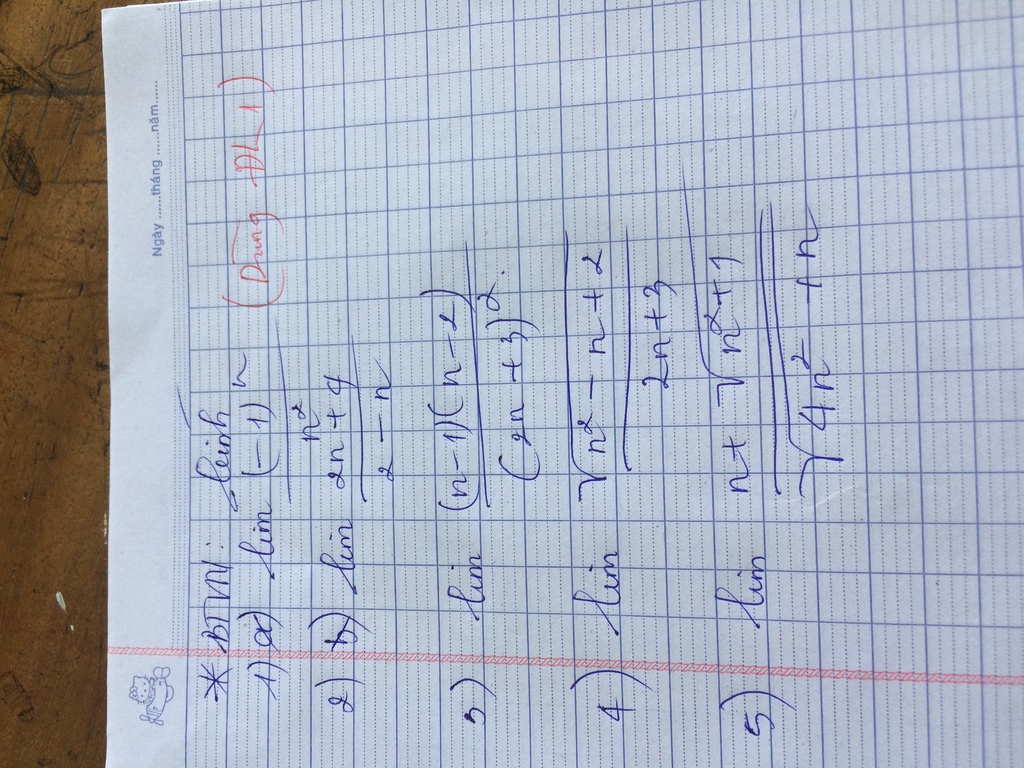 Ngày ......tháng ......năm......
* BTVN: Tính
1) a) lim (-1)^n / n^2 (Dùng ĐL 1)
2) b) lim (2n + 4) / (2 - n)
3) lim (n-1)(n-2) / (2n+3)^2.
4) lim √(n^2 - n + 2) / (2n+3)
5) lim (n + √(n^2+1)) / (√(4n^2 + n))